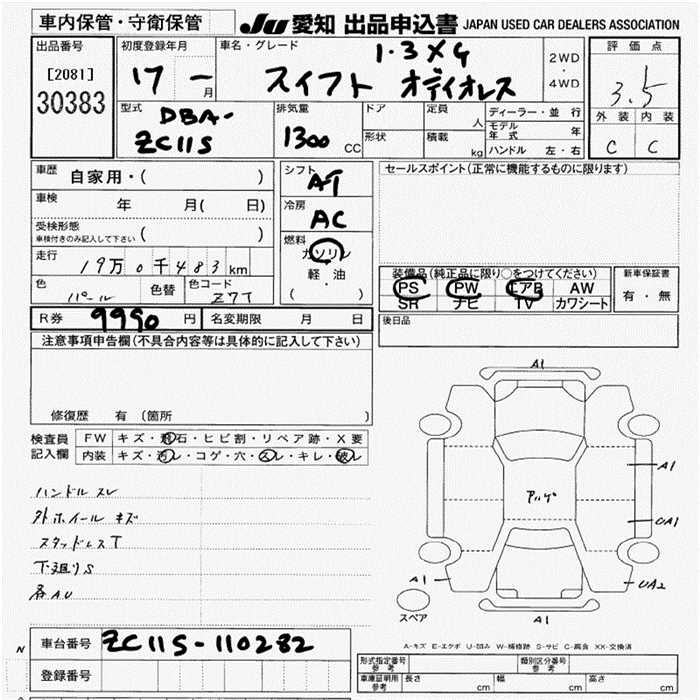 車内保管・守衛保管
JU 愛知 出品申込書 JAPAN USED CAR DEALERS ASSOCIATION
出品番号
[2081]
30383
初度登録年月
17年 一月
車名・グレード
1.3XG
スイフト オデイオレス
2WD
・
4WD
評価点
3.5
外装 内装
C C
型式
DBA-
ZC11S
排気量
1300 CC
ドア
形状
定員
人
積載
kg
ディーラー・並行
モデル年式 年
ハンドル 左・右
車歴
自家用・( )
車検
年 月( 日)
受検形態
車検付きのみ記入して下さい ( )
走行
19万0千483km
色
パール
色替
色コード
Z7T
シフト
AT
冷房
AC
燃料
ガソリン
軽・油
( )
セールスポイント(正常に機能するものに限ります)
装備品(純正品に限り○をつけてください)
PS PW エアB AW
SR ナビ TV カワシート
新車保証書
有・無
R券 9990 円
名変期限 月 日
後日品
注意事項申告欄(不具合内容等は具体的に記入して下さい)
修復歴 有 (箇所 )
検査員
記入欄
FW キズ・飛石・ヒビ割・リペア跡・X要
内装 キズ・汚レ・コゲ・穴・スレ・キレ・破レ
ハンドル スレ
外ホイール キズ
スタッドレスT
下廻りS
各AU
A1
アルゲ
A1
UA1
A1
UA2
スペア
A1
A-キズ E-エクボ U-凹み W-補修跡 S-サビ C-腐食 XX-交換済
N
車台番号 ZC11S-110282
登録番号
形式指定番号
参考
類別区分番号
参考
車庫証明用
参考
長さ cm
幅 cm
高さ cm